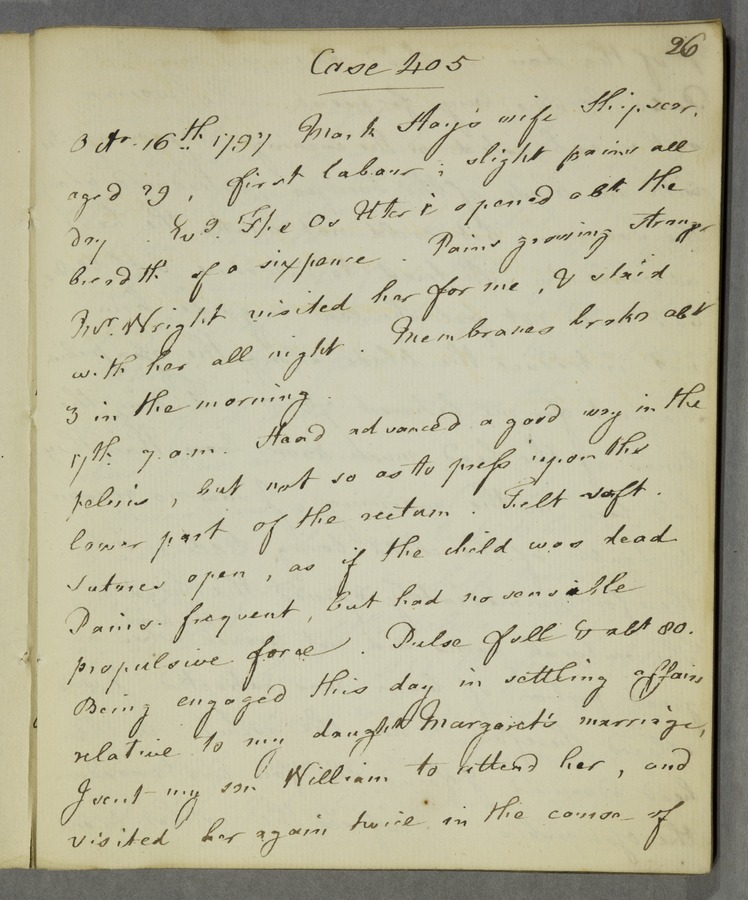 26
Case 405
Octr. 16th 1797 Mark Hay's wife
aged 29, first labour; slight pains all
day. The Os Uteri opened abt the
breadth of a sixpence. Pains growing stronger
Mr. Wright visited her for me, & staid
with her all night. Membranes broke abt
3 in the morning.
17th 7 a.m. Head advanced a good way in the
pelvis, but not so as to press upon the
lower part of the rectum. Felt soft.
sutures open, as if the child was dead
Pains frequent, but had no sensible
propulsive force. Pulse full & abt 80.
Being engaged this day in settling affairs
relative to my daughtr Margaret's marriage,
I sent my son William to attend her, and
visited her again twice in the course of